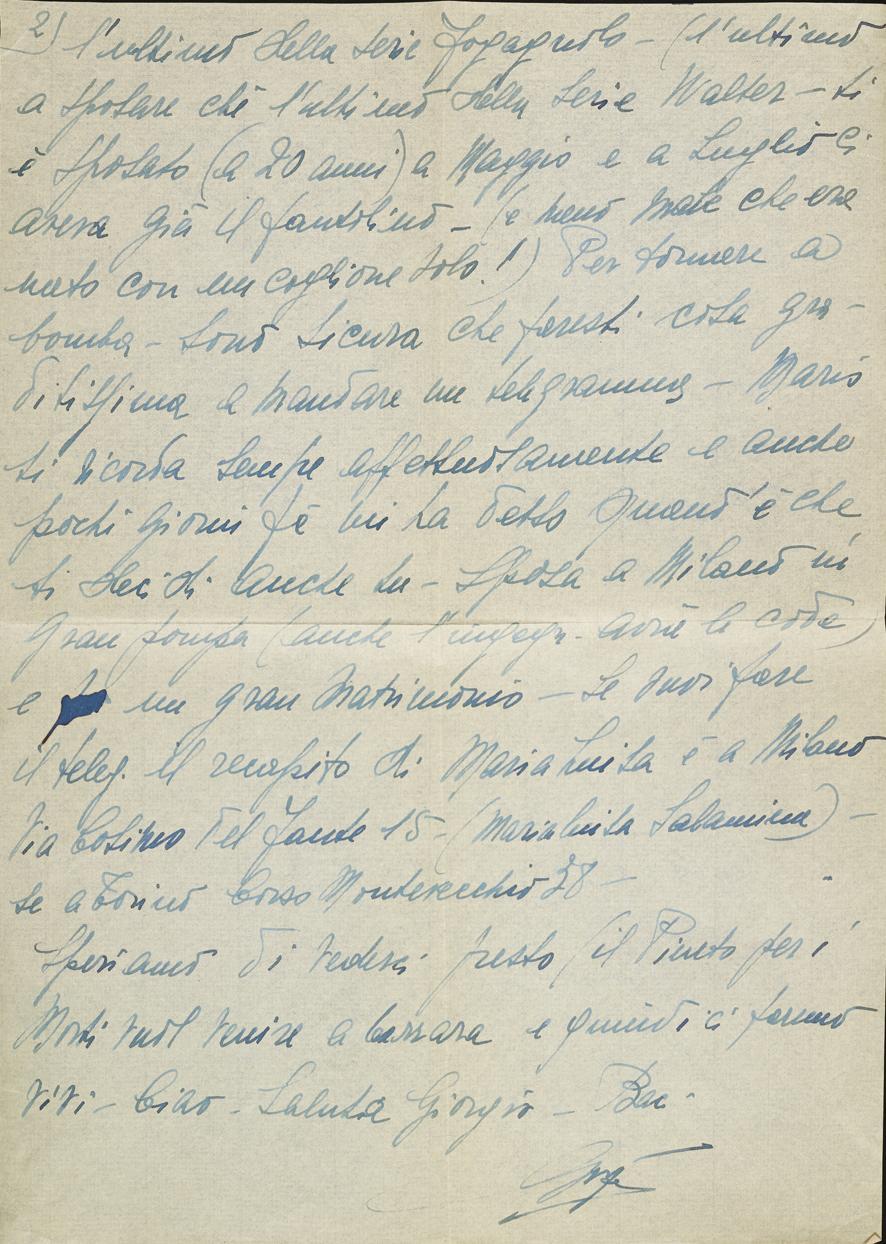 2) l'ultimo della serie Fogagnolo - (l'ultimo
a sposare chè l'ultimo della serie Walter - si
è sposato (a 20 anni) a Maggio e a Luglio ci
aveva già il fantolino - (e meno male che era
nato con un coglione solo!) Per tornare a
bomba - sono sicura che faresti cosa gra-
ditissima a mandare un telegramma - Mario
ti ricorda sempre affettuosamente e anche
pochi giorni fà mi ha detto quand'è che
ti decidi anche tu - Sposa a Milano in
gran pompa (anche l'ingegn. avrà le code)
e un gran matrimonio - Se vuoi fare
il teleg. il recapito di Maria Luisa è a Milano
Via Cosimo del Fante 15 - (Marialuisa Salamina) -
se a Torino Corso Montevecchio 38 -
Speriamo di vederci presto (il Pineto per i
Morti vuol venire a Carrara e quindi ci faremo
vivi - Ciao - Saluta Giorgio - Baci